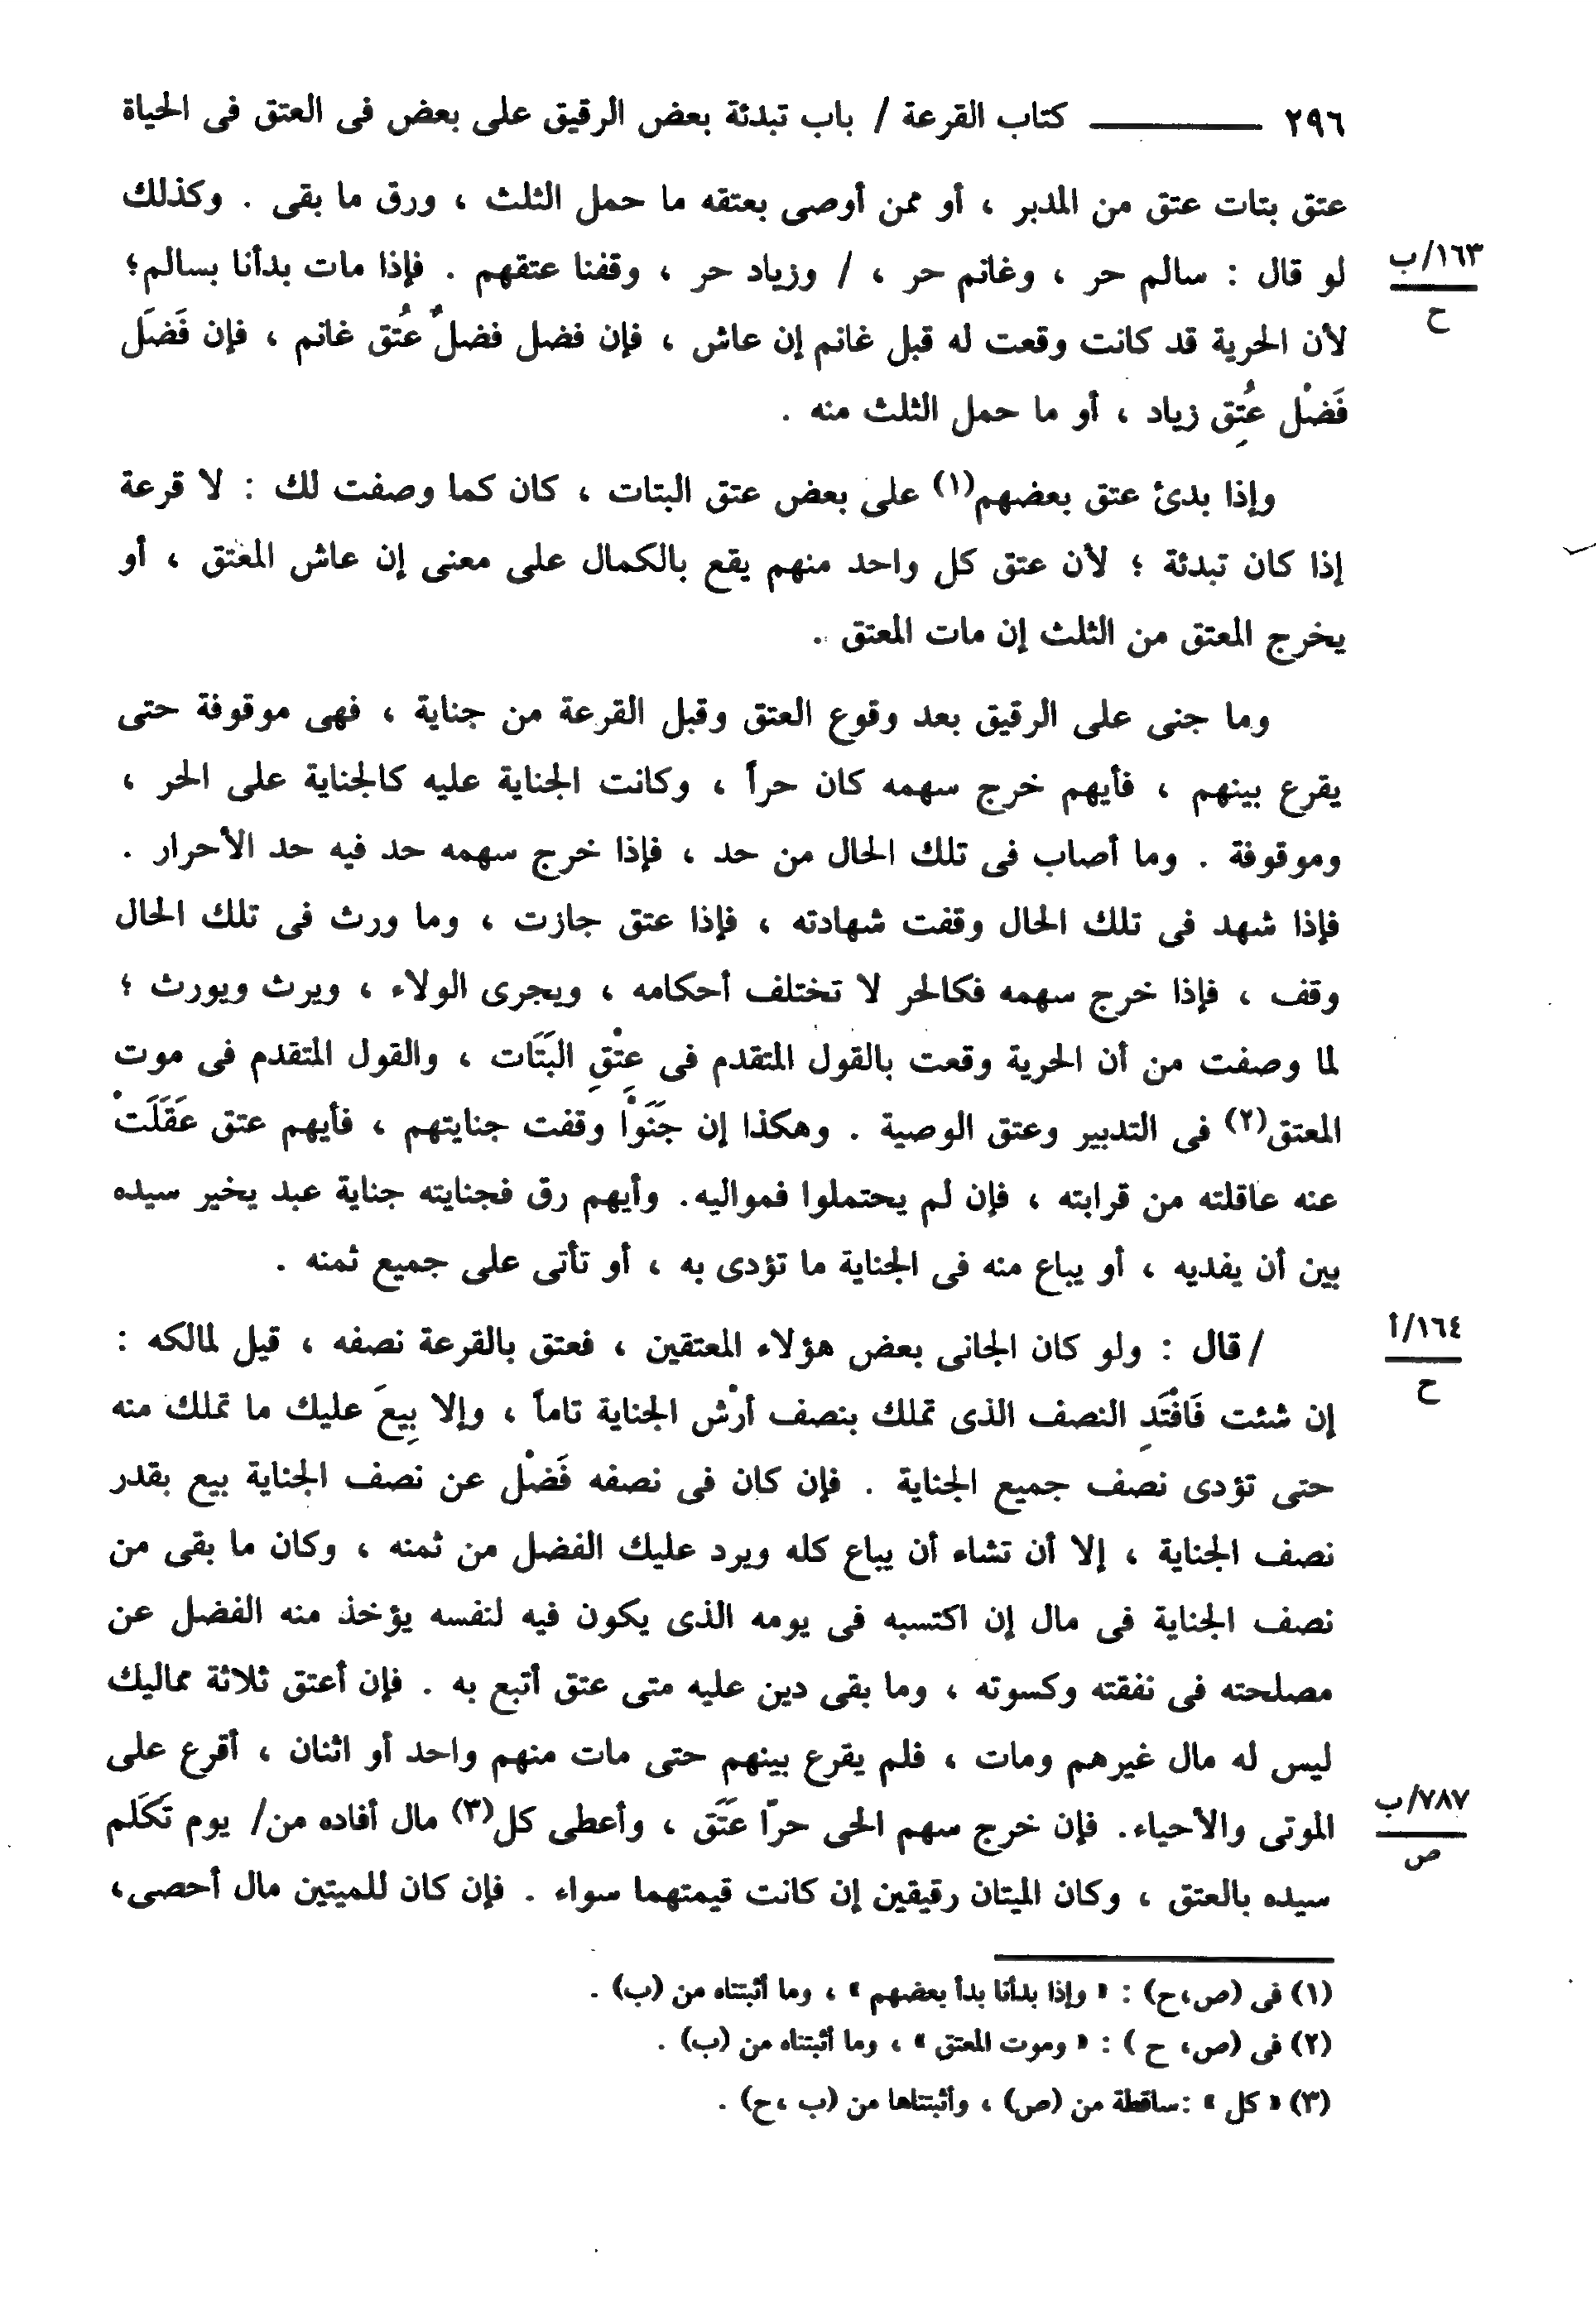 ٢٩٦ ــــــــ كتاب القرعة / باب تبدئة بعض الرقيق على بعض فى العتق فى الحياة
عتق بتات عتق من المدبر ، أو ممن أوصى بعتقه ما حمل الثلث ، ورق ما بقى . وكذلك
لو قال : سالم حر ، وغانم حر ، / وزياد حر ، وقفنا عتقهم . فإذا مات بدأنا بسالم؛
١٦٣/ب
ح
لأن الحرية قد كانت وقعت له قبل غانم إن عاش ، فإن فضل فضلٌ عُتق غانم ، فإن فَضَل
فَضْل عُتِق زياد ، أو ما حمل الثلث منه .
وإذا بدئ عتق بعضهم(١) على بعض عتق البتات ، كان كما وصفت لك : لا قرعة
إذا كان تبدئة ؛ لأن عتق كل واحد منهم يقع بالكمال على معنى إن عاش المعتق ، أو
يخرج المعتق من الثلث إن مات المعتق .
وما جنى على الرقيق بعد وقوع العتق وقبل القرعة من جناية ، فهى موقوفة حتى
يقرع بينهم ، فأيهم خرج سهمه كان حراً ، وكانت الجناية عليه كالجناية على الحر ،
وموقوفة . وما أصاب فى تلك الحال من حد ، فإذا خرج سهمه حد فيه حد الأحرار .
فإذا شهد فى تلك الحال وقفت شهادته ، فإذا عتق جازت ، وما ورث فى تلك الحال
وقف ، فإذا خرج سهمه فكالحر لا تختلف أحكامه ، ويجرى الولاء ، ويرث ويورث ؛
لما وصفت من أن الحرية وقعت بالقول المتقدم فى عِتْقِ البَتَات ، والقول المتقدم فى موت
المعتق(٢) فى التدبير وعتق الوصية . وهكذا إن جَنَوْا وقفت جنايتهم ، فأيهم عتق عَقَلَتْ
عنه عاقلته من قرابته ، فإن لم يحتملوا فمواليه. وأيهم رق فجنايته جناية عبد يخير سيده
بين أن يفديه ، أو يباع منه فى الجناية ما تؤدى به ، أو تأتى على جميع ثمنه .
/ قال : ولو كان الجانى بعض هؤلاء المعتقين ، فعتق بالقرعة نصفه ، قيل لمالكه :
١٦٤/أ
ح
إن شئت فَافْتَدِ النصف الذى تملك بنصف أرْش الجناية تاماً ، وإلا بِيعَ عليك ما تملك منه
حتى تؤدى نصف جميع الجناية . فإن كان فى نصفه فَضْل عن نصف الجناية بيع بقدر
نصف الجناية ، إلا أن تشاء أن يباع كله ويرد عليك الفضل من ثمنه ، وكان ما بقى من
نصف الجناية فى مال إن اكتسبه فى يومه الذى يكون فيه لنفسه يؤخذ منه الفضل عن
مصلحته فى نفقته وكسوته ، وما بقى دين عليه متى عتق أتبع به . فإن أعتق ثلاثة مماليك
ليس له مال غيرهم ومات ، فلم يقرع بينهم حتى مات منهم واحد أو اثنان ، أقرع على
الموتى والأحياء. فإن خرج سهم الحى حرّا عَتَق ، وأعطى كل(٣) مال أفاده من/ يوم تَكَلم
٧٨٧/ب
ص
سيده بالعتق ، وكان الميتان رقيقين إن كانت قيمتهما سواء . فإن كان للميتين مال أحصى،
(١) فى (ص،ح) : « وإذا بدأنا بدأ بعضهم » ، وما أثبتناه من (ب) .
(٢) فى (ص، ح ) : « وموت المعتق » ، وما أثبتناه من (ب) .
(٣) « كل » :ساقطة من (ص) ، وأثبتناها من (ب ،ح) .